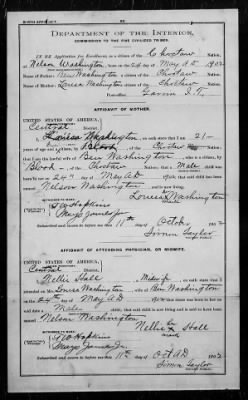 DEPARTMENT OF THE INTERIOR,
COMMISSION TO THE FIVE CIVILIZED TRIBES.
IN RE Application for Enrollment, as a citizen of the Choctaw Nation,
of Nelson Washington, born on the 24th day of May AD 1902
Name of Father: Ben Washington a citizen of the Choctaw Nation.
Name of Mother: Louisa Washington a citizen of the Choctaw Nation.
AFFIDAVIT OF MOTHER.
UNITED STATES OF AMERICA,
Central District.
I, Louisa Washington, on oath state that I am 21
years of age and a citizen, by Blood, of the Choctaw Nation;
that I am the lawful wife of Ben Washington, who is a citizen, by
Blood, of the Choctaw Nation; that a Male child was
born to me on 24th day of May AD, 1902; that said child has been named
Nelson Washington, and is now living.
Louisa Washington
Subscribed and sworn to before me this 11th day of 1902
Simon Taylor
AFFIDAVIT OF ATTENDING PHYSICIAN, OR MIDWIFE.
UNITED STATES OF AMERICA,
Central District.
I, Nellie Hall, a Midwife, on oath state that I
attended on Mrs. Louisa Washington, wife of Ben Washington
on the 24th day of May AD, 1902; that there was born to her on said
date a Male child; that said child is now living and is said to have been named
Nelson Washington
Nellie Hall
Subscribed and sworn to before me this 11th day of Oct AD 1902
Simon Taylor